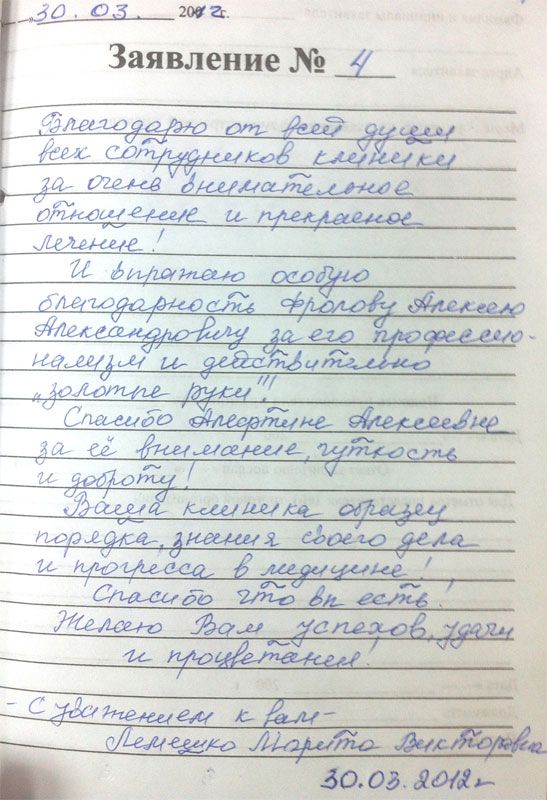 „30.03. 2012г.
Заявление № 4
Благодарю от всей души
всех сотрудников клиники
за очень внимательное
отношение и прекрасное
лечение!
И выражаю особую
благодарность Фролову Алексею
Александровичу за его профессио-
нализм и действительно
„золотые руки"!!!
Спасибо Алефтине Алексеевне
за её внимание, чуткость
и доброту!
Ваша клиника образец
порядка, знания своего дела
и прогресса в медицине!
Спасибо что вы есть!
Желаю Вам успехов, удачи
и процветания!
- С уважением к вам -
Лемешко Марита Викторовна
30.03.2012г